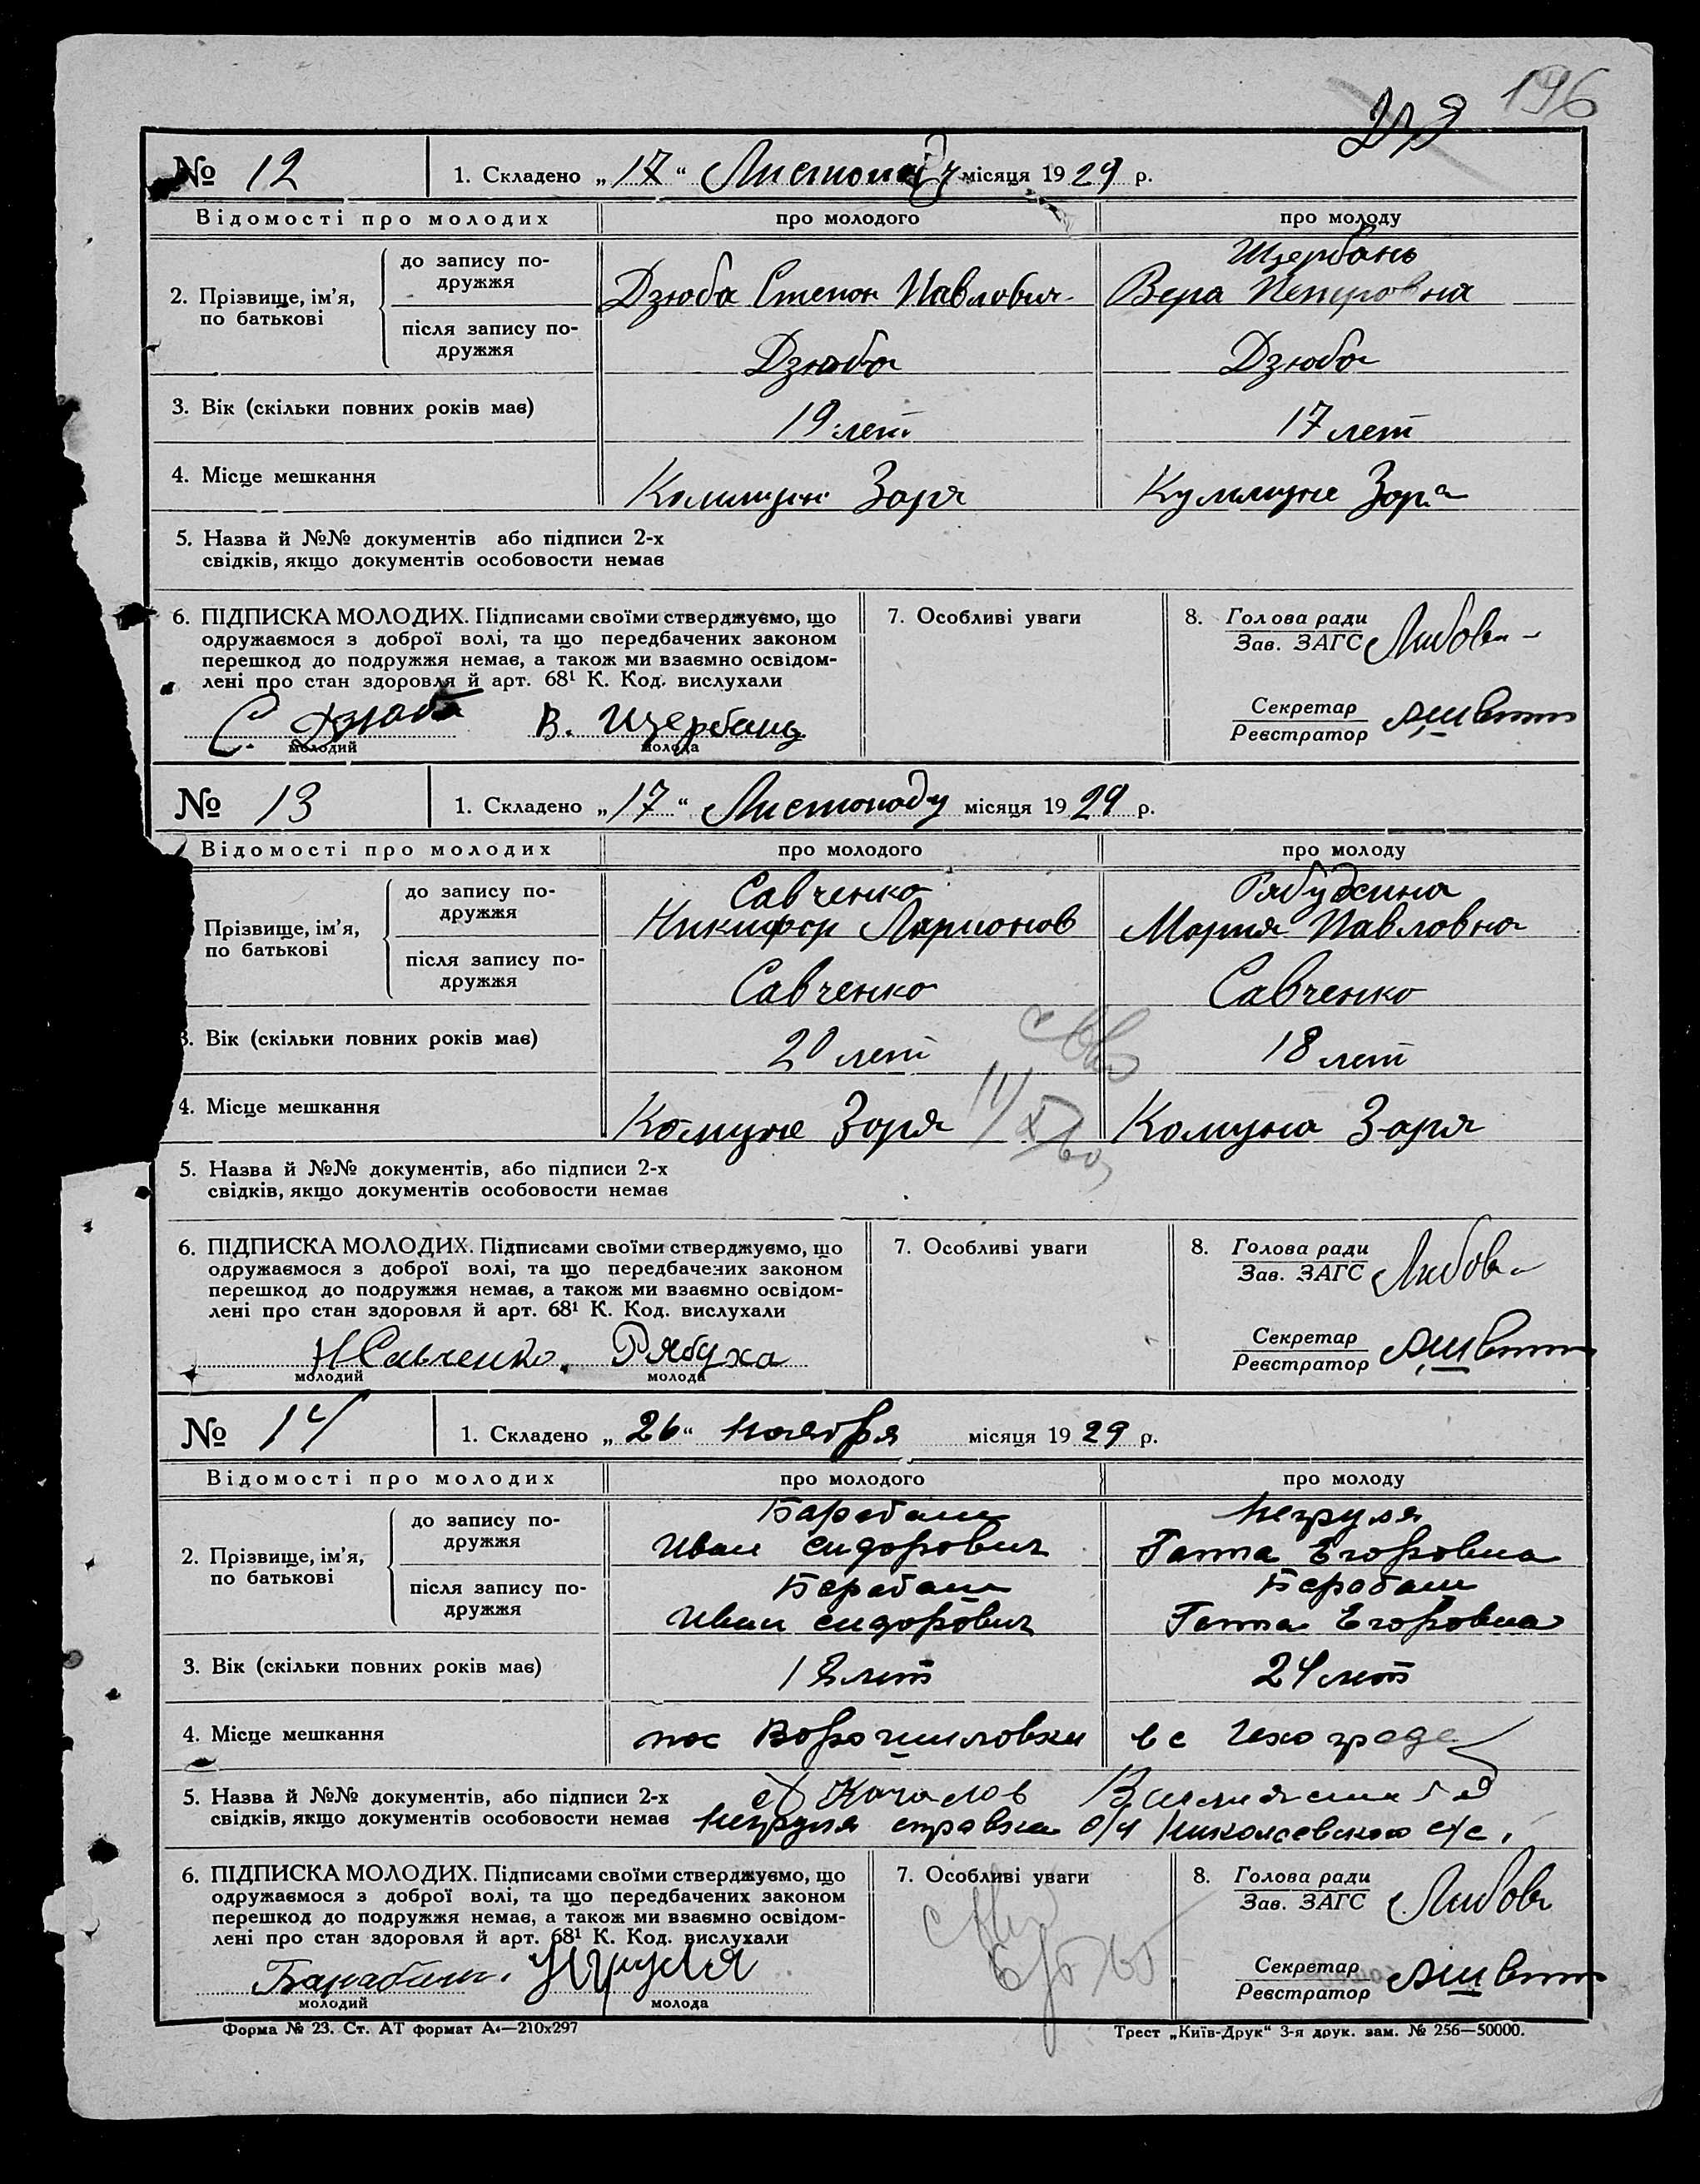 196
№ 12 1. Складено „17“ Листопаду місяця 1929 р.
Відомості про молодих про молодого про молоду
2. Прізвище, ім’я, по батькові
до запису подружжя Дзюба Степан Павлович Щербань
Вера Петровна
після запису подружжя Дзюба Дзюба
3. Вік (скільки повних років має) 19 лет 17 лет
4. Місце мешкання Коммуне Заря Куммуне Заря
5. Назва й №№ документів або підписи 2-х
свідків, якщо документів особовости немає
6. ПІДПИСКА МОЛОДИХ. Підписами своїми стверджуємо, що
одружаємося з доброї волі, та що передбачених законом
перешкод до подружжя немає, а також ми взаємно освідом-
лені про стан здоровля й арт. 68¹ К. Код. вислухали
С. Дзюба В. Щербань
молодий молода
7. Особливі уваги
8. Голова ради
Зав. ЗАГС
Секретар
Реєстратор
№ 13 1. Складено „17“ Листопаду місяця 1929 р.
Відомості про молодих про молодого про молоду
Прізвище, ім’я, по батькові
до запису подружжя Савченко Рябухина
Никифор Ларионов Мария Павловна
після запису подружжя Савченко Савченко
3. Вік (скільки повних років має) 20 лет 18 лет
4. Місце мешкання Комуне Заря Комуна Заря
5. Назва й №№ документів, або підписи 2-х
свідків, якщо документів особовости немає
6. ПІДПИСКА МОЛОДИХ. Підписами своїми стверджуємо, що
одружаємося з доброї волі, та що передбачених законом
перешкод до подружжя немає, а також ми взаємно освідом-
лені про стан здоровля й арт. 68¹ К. Код. вислухали
Н Савченко. Рябуха
молодий молода
7. Особливі уваги
8. Голова ради
Зав. ЗАГС
Секретар
Реєстратор
№ 14 1. Складено „26“ ноября місяця 1929 р.
Відомості про молодих про молодого про молоду
2. Прізвище, ім’я, по батькові
до запису подружжя Барабаш Негруля
Иван Сидорович Ганна Егоровна
після запису подружжя Барабаш Барабаш
Иван Сидорович Ганна Егоровна
3. Вік (скільки повних років має) 18 лет 24 лет
4. Місце мешкання пос Ворошиловки в с Чехограде
5. Назва й №№ документів, або підписи 2-х
свідків, якщо документів особовости немає
Негруля справка Николаевского с/с.
6. ПІДПИСКА МОЛОДИХ. Підписами своїми стверджуємо, що
одружаємося з доброї волі, та що передбачених законом
перешкод до подружжя немає, а також ми взаємно освідом-
лені про стан здоровля й арт. 68¹ К. Код. вислухали
Барабаш. Нгруля
молодий молода
7. Особливі уваги
8. Голова ради
Зав. ЗАГС
Секретар
Реєстратор
Форма № 23. Ст. АТ формат А4—210x297 Трест „Київ-Друк“ 3-я друк. зам. № 256—50000.